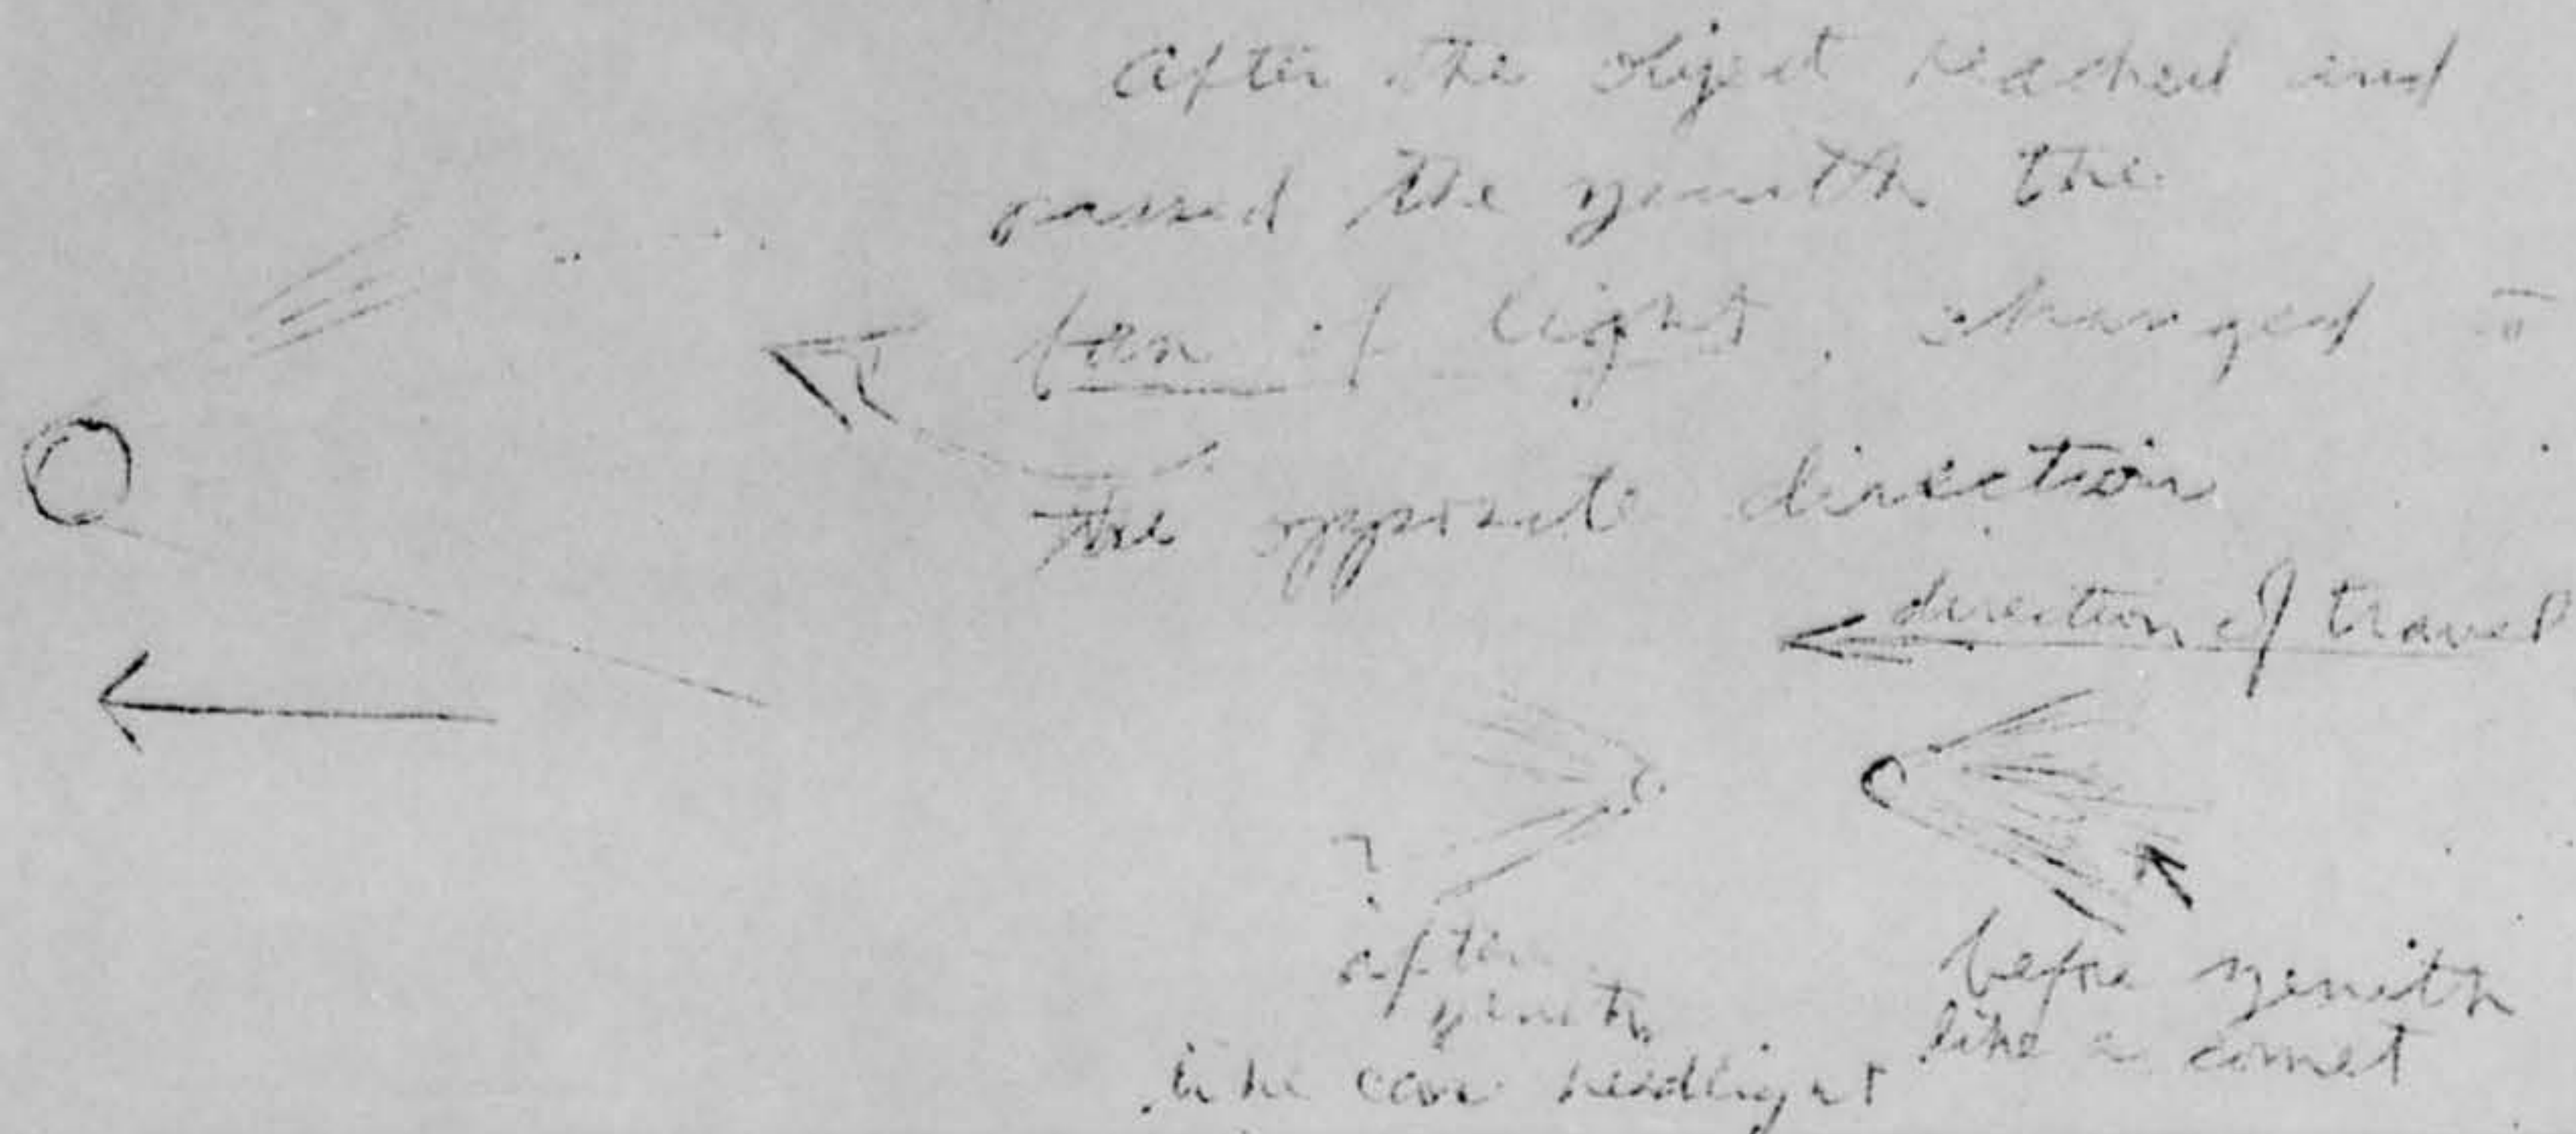 After the object reached and
passed the zenith the
fan of light, changed to
the opposite direction
direction of travel
?
after
zenith
like car headlight
before zenith
like a comet